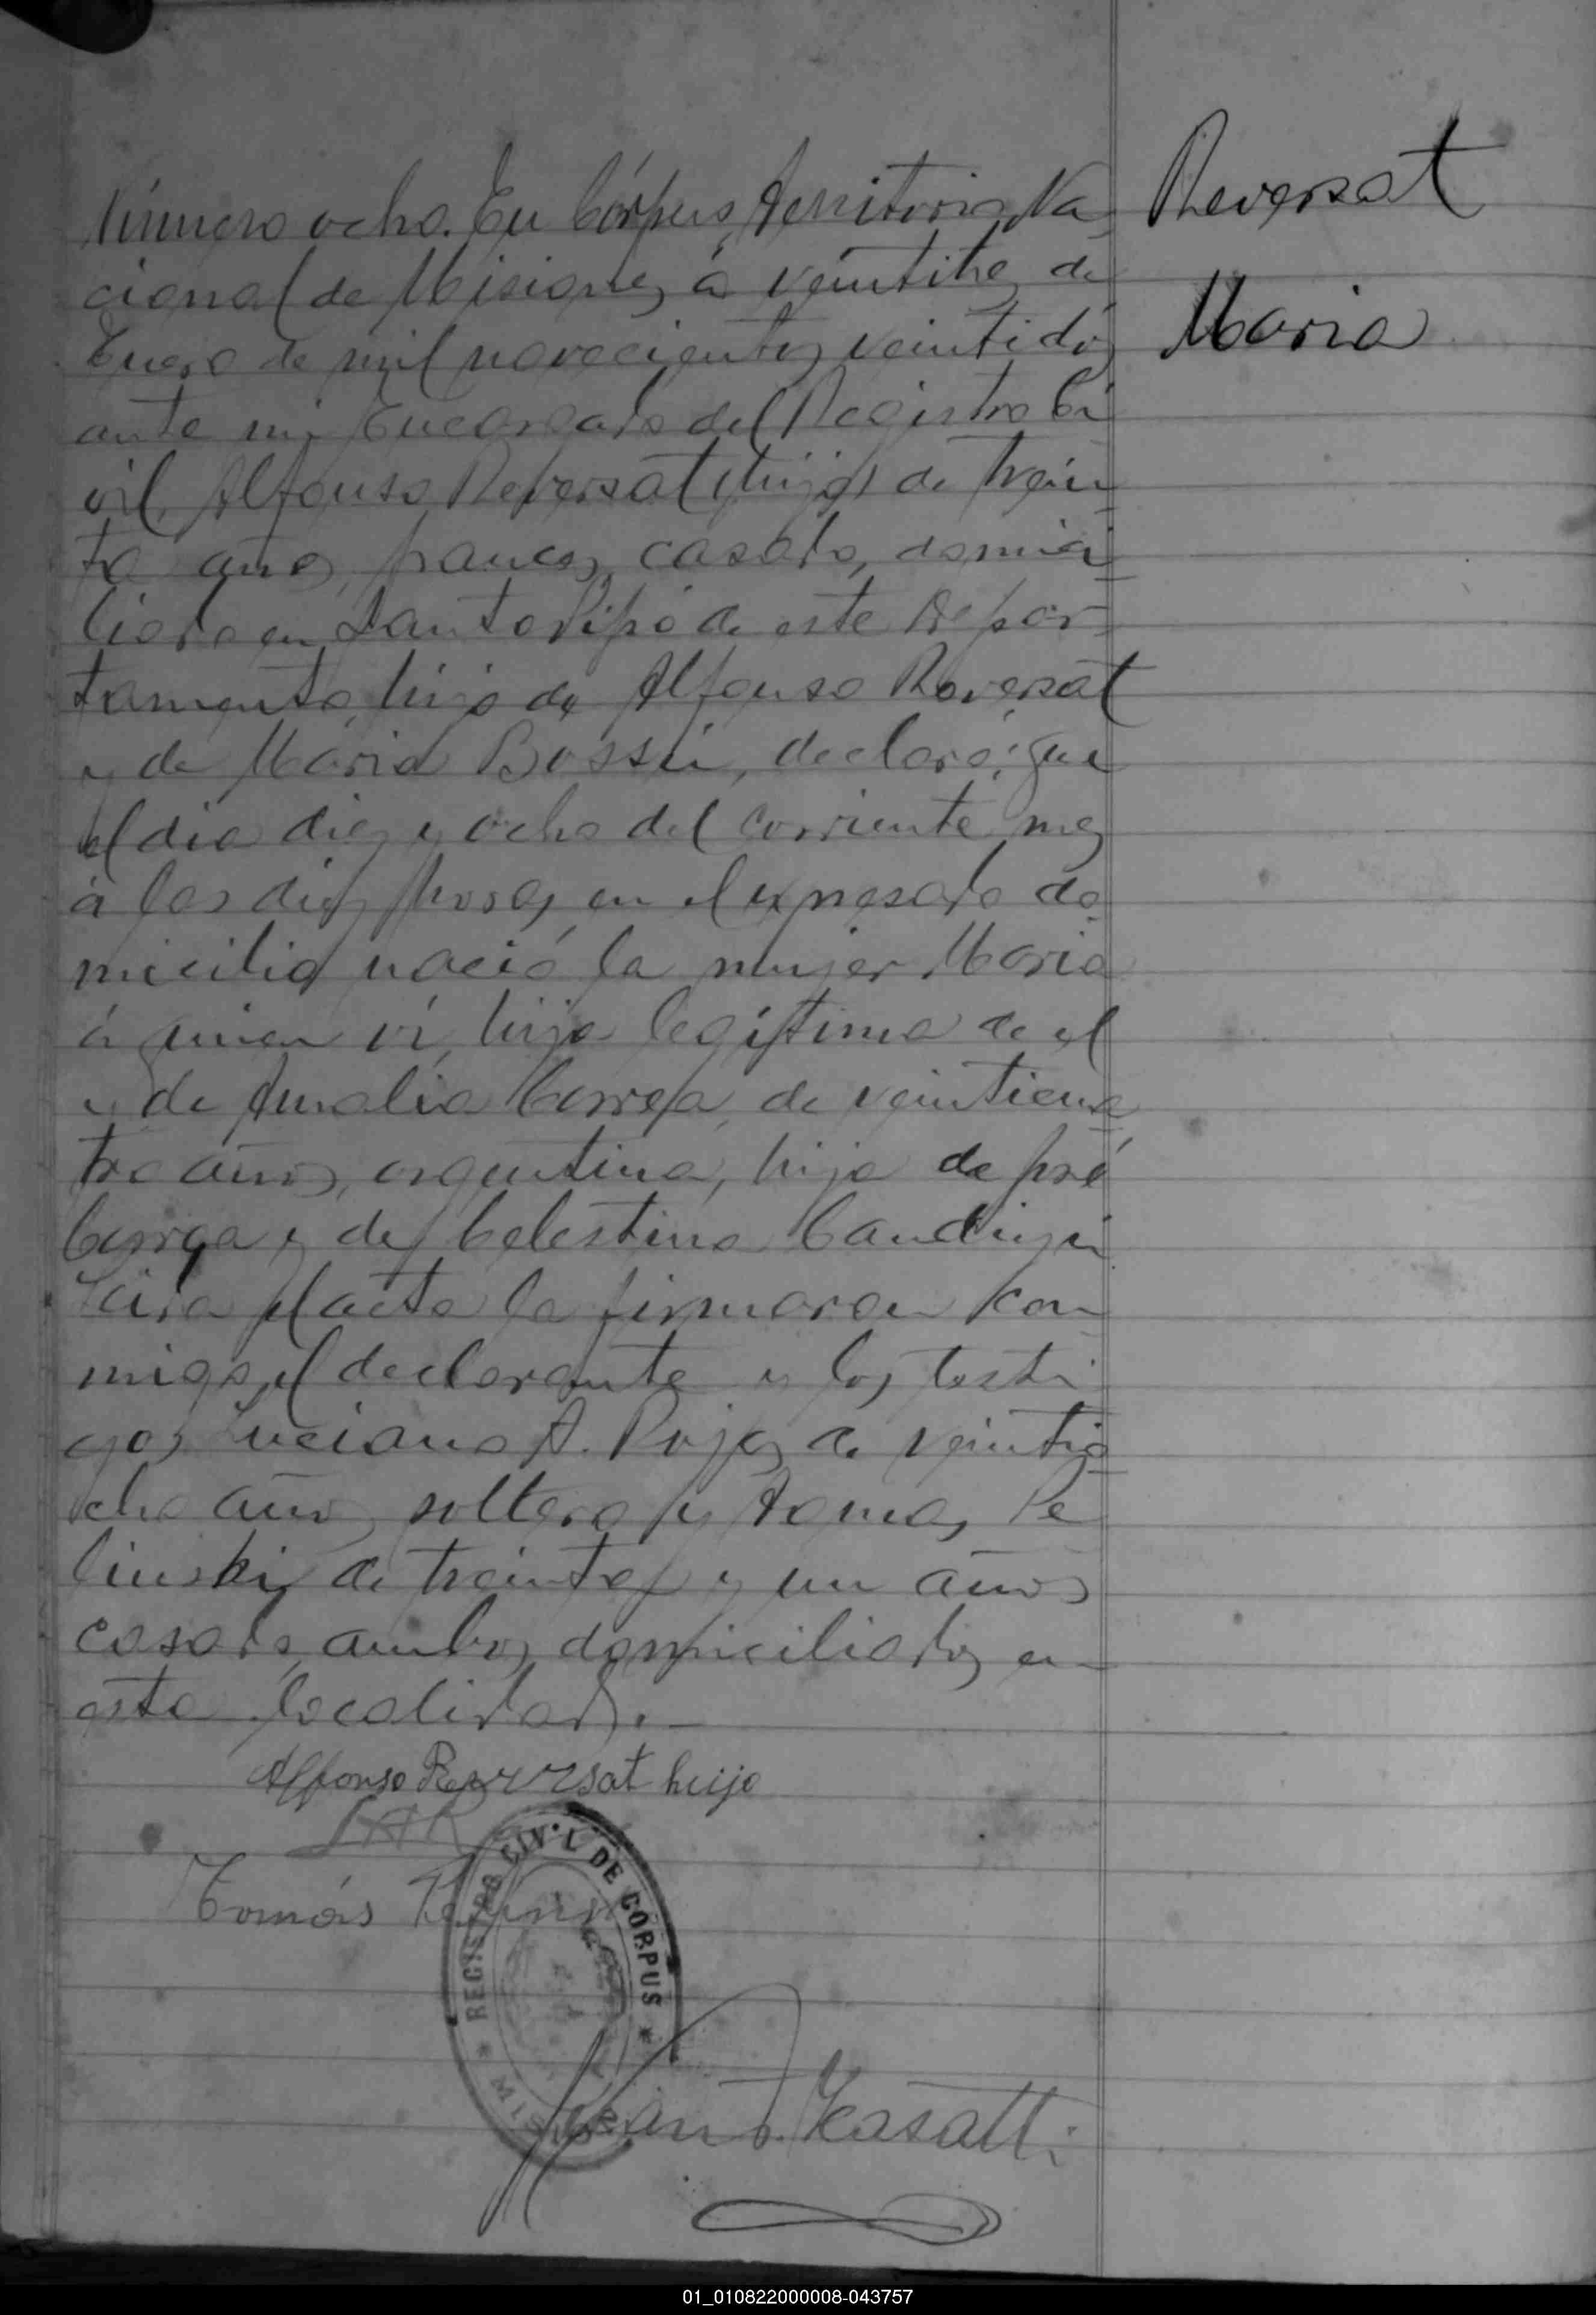 Número ocho. En Córpus, Territorio Na
cional de Misiones, á veintitres de
Enero de mil novecientos veintidós
ante mi Encargado del Registro Ci
vil, Alfonso Reversat (hijo) de trein
ta años, frances, casado, domici
liado en Santo Pipó de este Depar
tamento, hijo de Alfonso Reversat
y de Maria Bossú, declaró: que
el dia diez y ocho del corriente mes
á las diez horas en el expresado do
micilio nació la mujer Maria
á quien ví, hija legítima de el
y de Amalia Correa, de veinticua
tro años, argentina, hija de José
Correa y de Celestina Candia
el acta la firmaron con
migo, el declarante y los testi
gos Luciano A. Rojas de veintio
cho años, soltero y Tomas Pe
linski, de treinta y un años
casado, ambos domiciliados en
esta localidad.—
Alfonso Reversat huijo
LAR
Tomás
REGISTRO CIVIL DE CORPUS
* MISIONES *
Casatti
Reversat
Maria
01_010822000008-043757